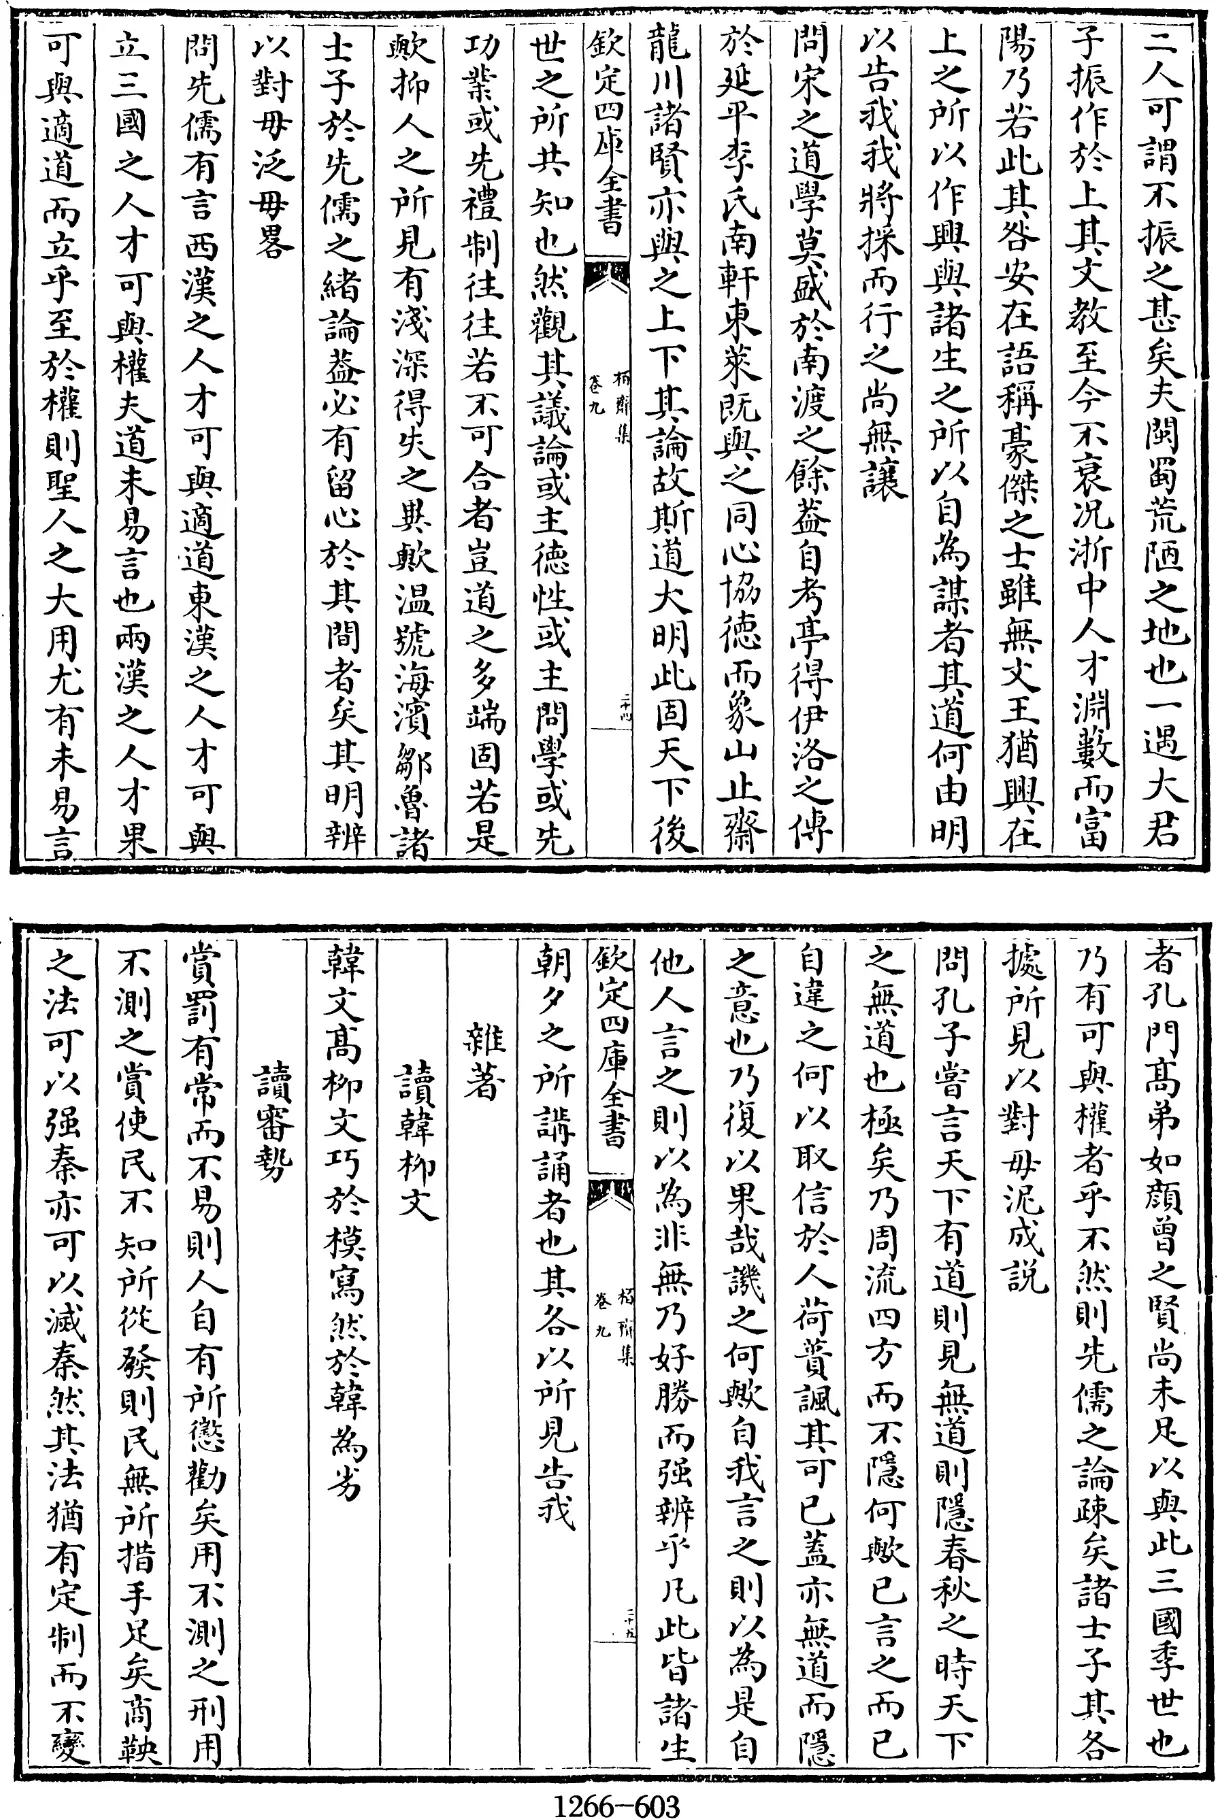 二人可謂不振之甚矣夫閩蜀荒陋之地也一遇大君
子振作於上其文教至今不衰况浙中人才淵藪而富
陽乃若此其咎安在語稱豪傑之士雖無文王猶興在
上之所以作興與諸生之所以自為謀者其道何由明
以告我我將採而行之尚無讓
問宋之道學莫盛於南渡之餘葢自考亭得伊洛之傳
於延平李氏南軒東萊既與之同心協徳而象山止齋
龍川諸賢亦與之上下其論故斯道大明此固天下後
欽定四庫全書
栢齋集
卷九
二十四
世之所共知也然觀其議論或主徳性或主問學或先
功業或先禮制往往若不可合者豈道之多端固若是
歟抑人之所見有淺深得失之異歟温號海濱鄒魯諸
士子於先儒之緒論葢必有留心於其間者矣其明辨
以對毋泛毋畧
問先儒有言西漢之人才可與適道東漢之人才可與
立三國之人才可與權夫道未易言也兩漢之人才果
可與適道而立乎至於權則聖人之大用尤有未易言
者孔門髙弟如顔曾之賢尚未足以與此三國季世也
乃有可與權者乎不然則先儒之論疎矣諸士子其各
據所見以對毋泥成説
問孔子嘗言天下有道則見無道則隱春秋之時天下
之無道也極矣乃周流四方而不隱何歟已言之而已
自違之何以取信於人荷蕢諷其可已蓋亦無道而隱
之意也乃復以果哉譏之何歟自我言之則以為是自
他人言之則以為非無乃好勝而强辨乎凡此皆諸生
欽定四庫全書
栢齋集
卷九
二十五
朝夕之所講誦者也其各以所見告我
雜著
讀韓柳文
韓文髙柳文巧於模寫然於韓為劣
讀審勢
賞罰有常而不易則人自有所懲勸矣用不測之刑用
不測之賞使民不知所從發則民無所措手足矣商鞅
之法可以强秦亦可以滅秦然其法猶有定制而不變
1266-603